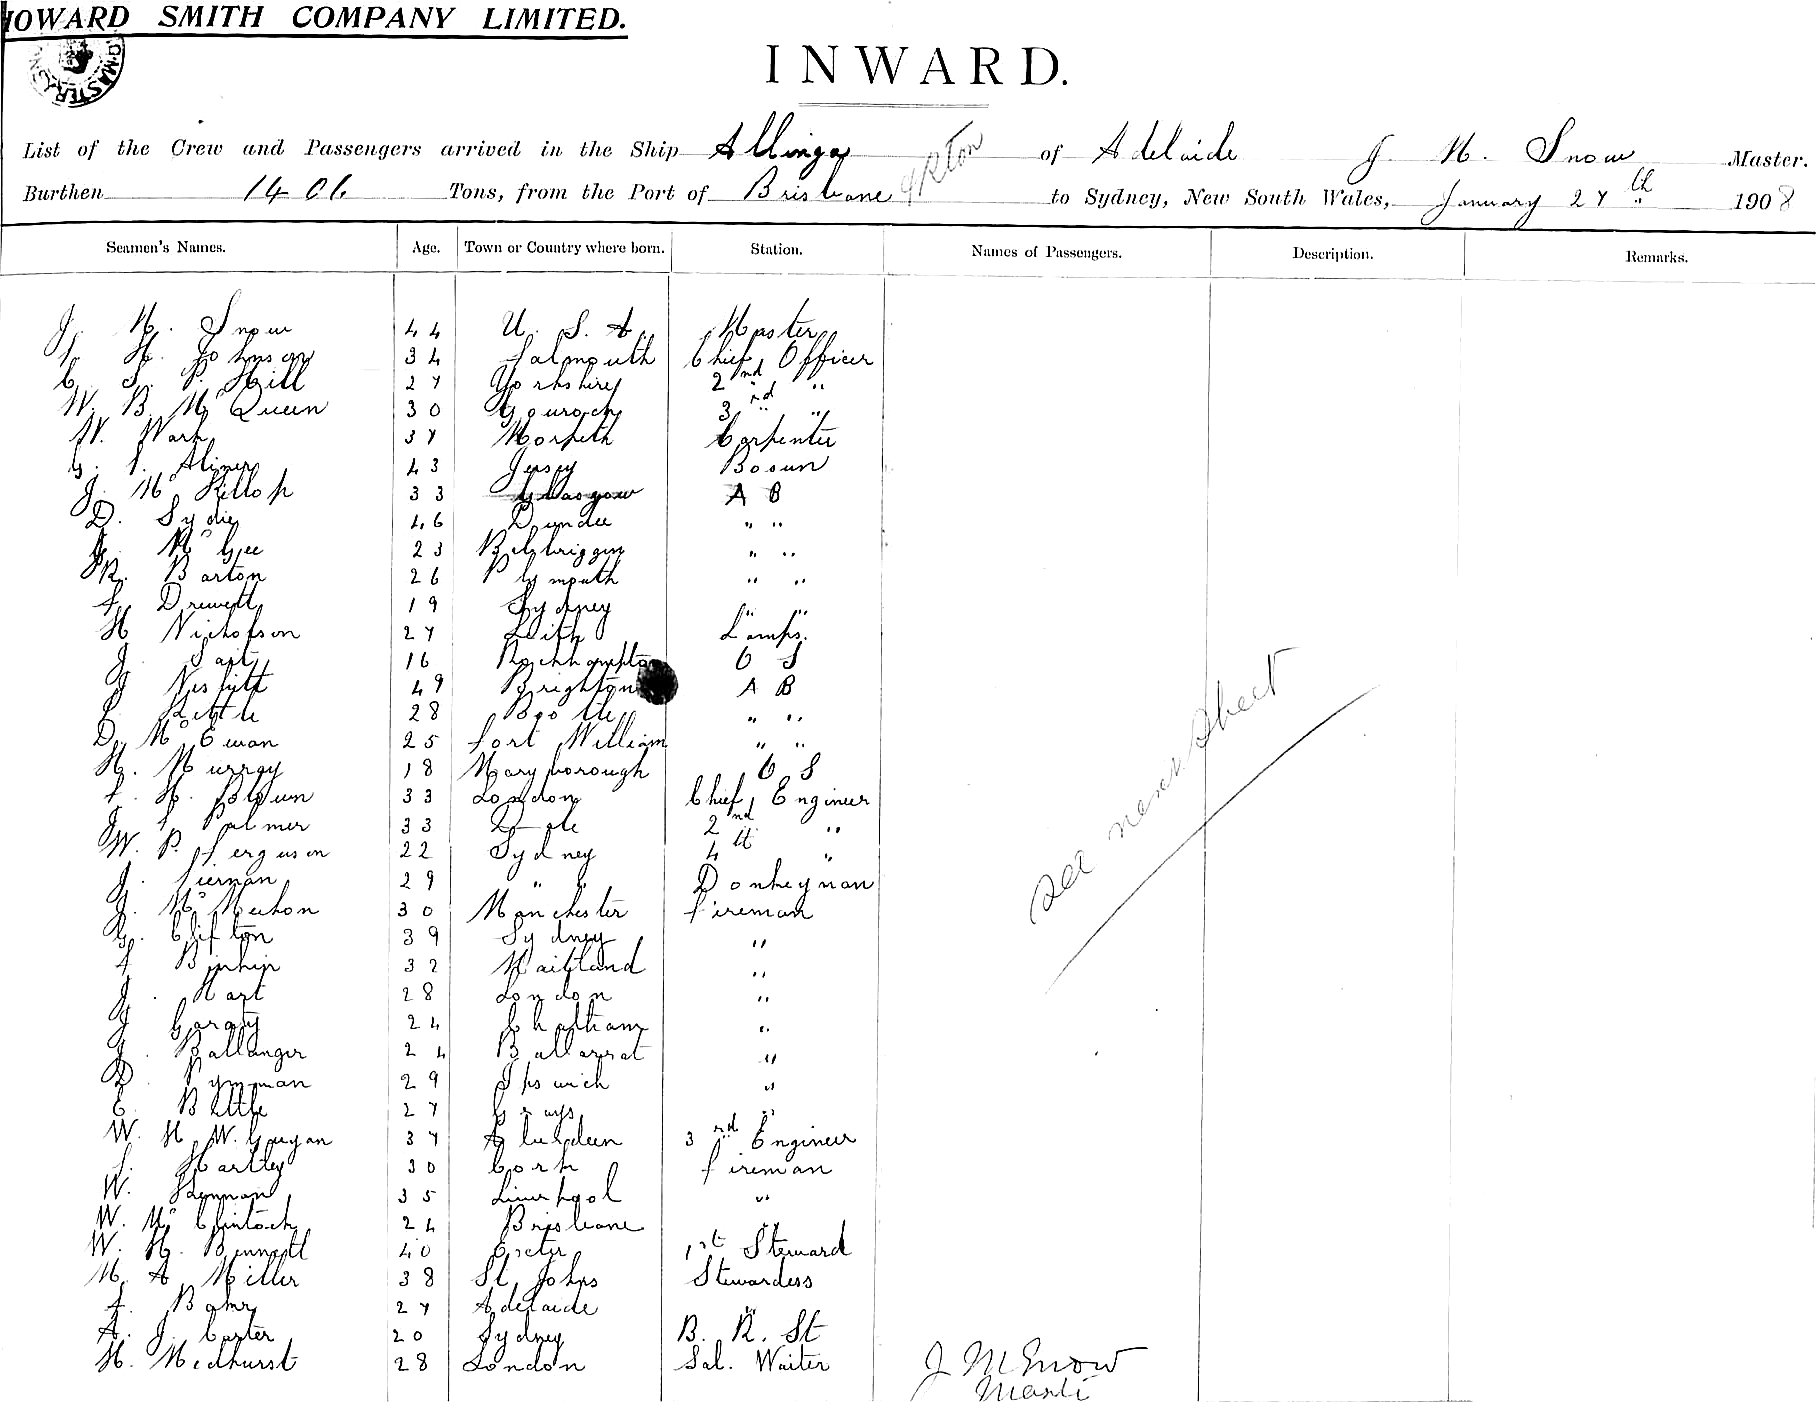 HOWARD SMITH COMPANY LIMITED.
INWARD.
List of the Crew and Passengers arrived in the Ship Allinga of Adelaide J. M. Snow Master.
Burthen 1406 Tons, from the Port of Brisbane to Sydney, New South Wales, January 27th 1908
Seamen's Names. Age. Town or Country where born. Station. Names of Passengers. Description. Remarks.
J. M. Snow 44 U. S. A. Master
H. Johnson 34 Falmouth Chief Officer
Hill 27 Yorkshire 2nd "
W. B. McQueen 30 Gourock 3rd "
W. Wark 37 Morpeth Carpenter
43 Jersey Bosun
J. McKillop 33 Glasgow A B
D. Sydie 46 Dundee " "
McGee 23 Balbriggan " "
R. Barton 26 Plymouth " "
Drewett 19 Sydney " "
H Nicholson 27 Leith Lamps.
J. 16 Rockhampton O S
J Nesbitt 49 Brighton A B
Kettle 28 Bootle " "
D. McEwan 25 Fort William " "
H. Murray 18 Maryborough O S
33 London Chief Engineer
J Palmer 33 2nd "
W. P. Ferguson 22 Sydney 4th "
J. Tiernan 29 " " Donkeyman
J. McMechon 30 Manchester Fireman
G. Clifton 39 Sydney "
32 Maitland "
J. Hart 28 London "
J Garaty 24 Chatham "
J. Ballanger 24 Ballarat "
D. 29 Ipswich "
E. Battle 27 Grays "
W. H. W. Gavgan 37 Aberdeen 3rd Engineer
Hartley 30 Cork Fireman
W. 35 Liverpool "
W. McClintock 24 Brisbane
W. H. Bennett 40 Exeter 1st Steward
M. A. Miller 38 St Johns Stewardess
27 Adelaide "
A. J. Carter 20 Sydney B. R. St
H. Medhurst 28 London Sal. Waiter
See next Sheet
J M Snow
Master